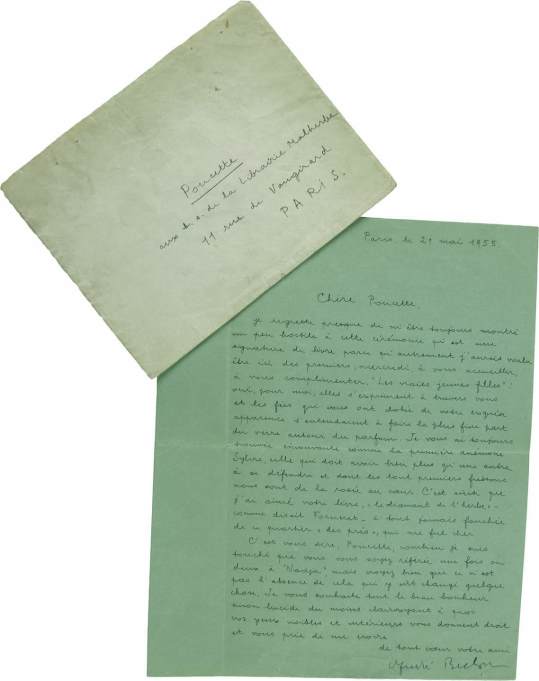 Poucette
aux b. s. de la Librairie Malherbe
11 rue de Vaugirard
PARIS.
Paris, le 21 mai 1955.
Chère Poucette
je regrette presque de m'être toujours montré
un peu hostile à cette cérémonie qui est une
signature de livre parce qu'autrement j'aurais voulu
être ici des premiers, mercredi à vous accueillir
à vous complimenter. "Les vraies jeunes filles":
oui, pour moi, elles s'expriment à travers vous
et les fées qui vous ont dotée de votre exquise
apparence s'entendaient à faire la plus fine part
du verre autour du parfum. Je vous ai toujours
trouvée émouvante comme la première anémone
Sylvie, celle qui doit avoir bien plus qu'une autre
à se défendre et dont les tout premiers frissons
nous sont de la rosée au cœur. C'est ainsi que
j'ai aimé votre livre, "le diamant de l'herbe," -
comme disait Forneret - à tout jamais fauchée
de ce quartier "des prés", qui me fut cher.
C'est vous dire, Poucette, combien je suis
touché que vous vous soyez référée une fois ou
deux à "Nadja" mais croyez bien que ce n'est
pas l'absence de cela qui y eût changé quelque
chose. Je vous souhaite tout le beau bonheur
sinon lucide du moins clairvoyant à quoi
vos yeux visibles et intérieurs vous donnent droit
et vous prie de me croire
de tout cœur votre ami
André Breton